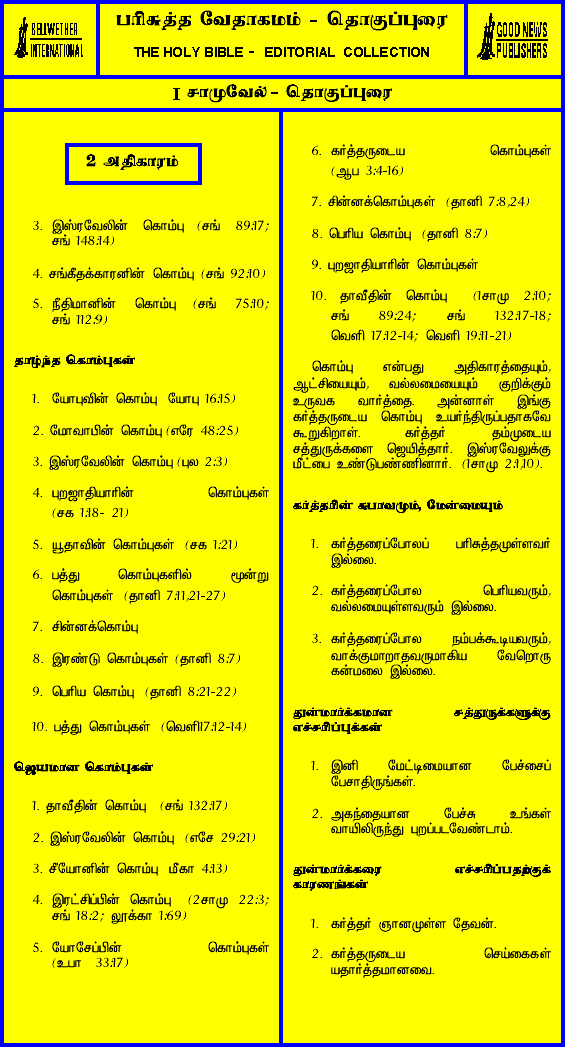 BELLWETHER
INTERNATIONAL
பரிசுத்த வேதாகமம் - தொகுப்புரை
THE HOLY BIBLE - EDITORIAL COLLECTION
GOOD NEWS
PUBLISHERS
I சாமுவேல் - தொகுப்புரை
2 அதிகாரம்
3. இஸ்ரவேலின் கொம்பு (சங் 89:17;
சங் 148:14)
4. சங்கீதக்காரனின் கொம்பு (சங் 92:10)
5. நீதிமானின் கொம்பு (சங் 75:10;
சங் 112:9)
தாழ்ந்த கொம்புகள்
1. யோபுவின் கொம்பு யோபு 16:15)
2. மோவாபின் கொம்பு (எரே 48:25)
3. இஸ்ரவேலின் கொம்பு (புல 2:3)
4. புறஜாதியாரின் கொம்புகள்
(சக 1:18- 21)
5. யூதாவின் கொம்புகள் (சக 1:21)
6. பத்து கொம்புகளில் மூன்று
கொம்புகள் (தானி 7:11,21-27)
7. சின்னக்கொம்பு
8. இரண்டு கொம்புகள் (தானி 8:7)
9. பெரிய கொம்பு (தானி 8:21-22)
10. பத்து கொம்புகள் (வெளி17:12-14)
ஜெயமான கொம்புகள்
1. தாவீதின் கொம்பு (சங் 132:17)
2. இஸ்ரவேலின் கொம்பு (எசே 29:21)
3. சீயோனின் கொம்பு மீகா 4:13)
4. இரட்சிப்பின் கொம்பு (2சாமு 22:3;
சங் 18:2; லூக்கா 1:69)
5. யோசேப்பின் கொம்புகள்
(உபா 33:17)
6. கர்த்தருடைய கொம்புகள்
(ஆப 3:4-16)
7. சின்னக்கொம்புகள் (தானி 7:8,24)
8. பெரிய கொம்பு (தானி 8:7)
9. புறஜாதியாரின் கொம்புகள்
10. தாவீதின் கொம்பு (1சாமு 2:10;
சங் 89:24; சங் 132:17-18;
வெளி 17:12-14; வெளி 19:11-21)
கொம்பு என்பது அதிகாரத்தையும்,
ஆட்சியையும், வல்லமையையும் குறிக்கும்
உருவக வார்த்தை. அன்னாள் இங்கு
கர்த்தருடைய கொம்பு உயர்ந்திருப்பதாகவே
கூறுகிறாள். கர்த்தர் தம்முடைய
சத்துருக்களை ஜெயித்தார். இஸ்ரவேலுக்கு
மீட்பை உண்டுபண்ணினார். (1சாமு 2:1,10).
கர்த்தரின் சுபாவமும், மேன்மையும்
1. கர்த்தரைப்போலப் பரிசுத்தமுள்ளவர்
இல்லை.
2. கர்த்தரைப்போல பெரியவரும்,
வல்லமையுள்ளவரும் இல்லை.
3. கர்த்தரைப்போல நம்பக்கூடியவரும்,
வாக்குமாறாதவருமாகிய வேறொரு
கன்மலை இல்லை.
துன்மார்க்கமான சத்துருக்களுக்கு
எச்சரிப்புக்கள்
1. இனி மேட்டிமையான பேச்சைப்
பேசாதிருங்கள்.
2. அகந்தையான பேச்சு உங்கள்
வாயிலிருந்து புறப்படவேண்டாம்.
துன்மார்க்கரை எச்சரிப்பதற்குக்
காரணங்கள்
1. கர்த்தர் ஞானமுள்ள தேவன்.
2. கர்த்தருடைய செய்கைகள்
யதார்த்தமானவை.